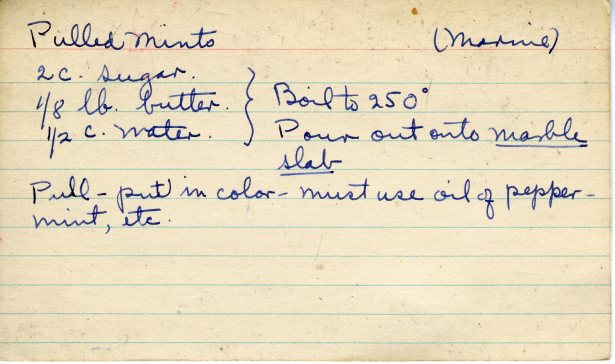 Pulled Mints (Maxine)
2 c. sugar.
1/8 lb. butter. } Boil to 250°
1/2 c. water. Pour out onto marble
slab
Pull - put in color - must use oil of pepper-
mint, etc.